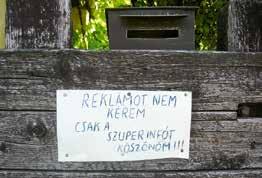 REKLÁMOT NEM
KÉREM
CSAK A
SZUPERINFÓT
KÖSZÖNÖM!!!